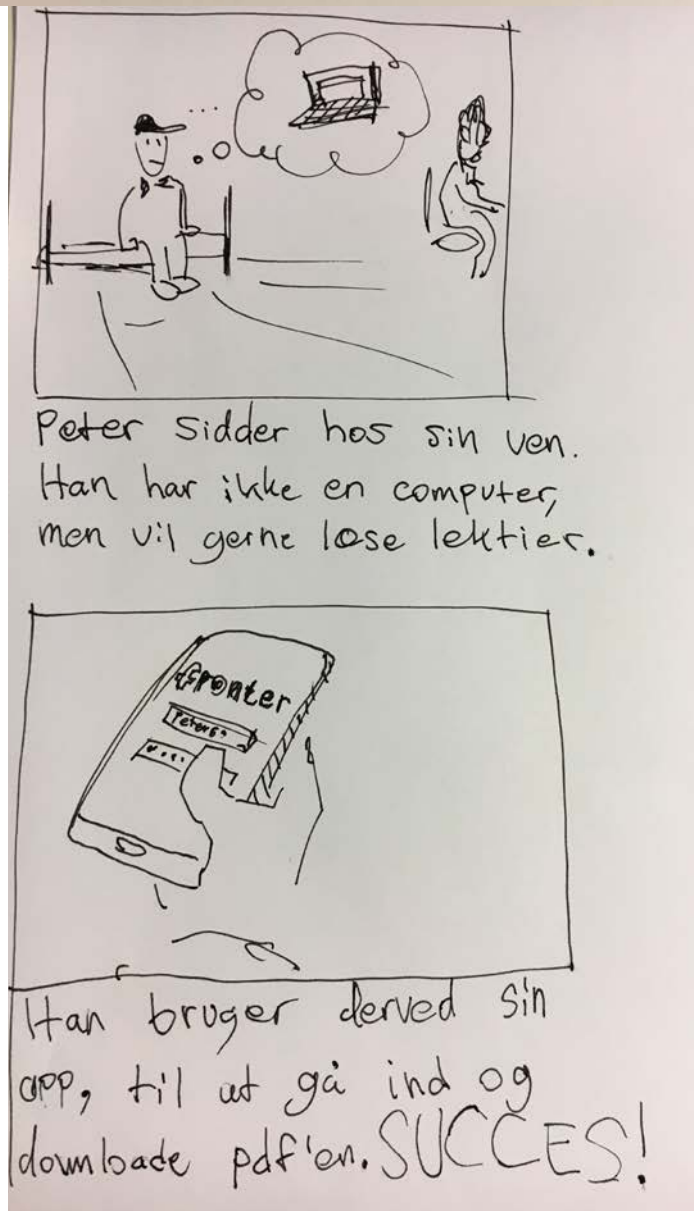 Peter sidder hos sin ven.
Han har ikke en computer,
men vil gerne løse lektier.
fronter
Han bruger derved sin
app, til at gå ind og
downloade pdf'en. SUCCES!